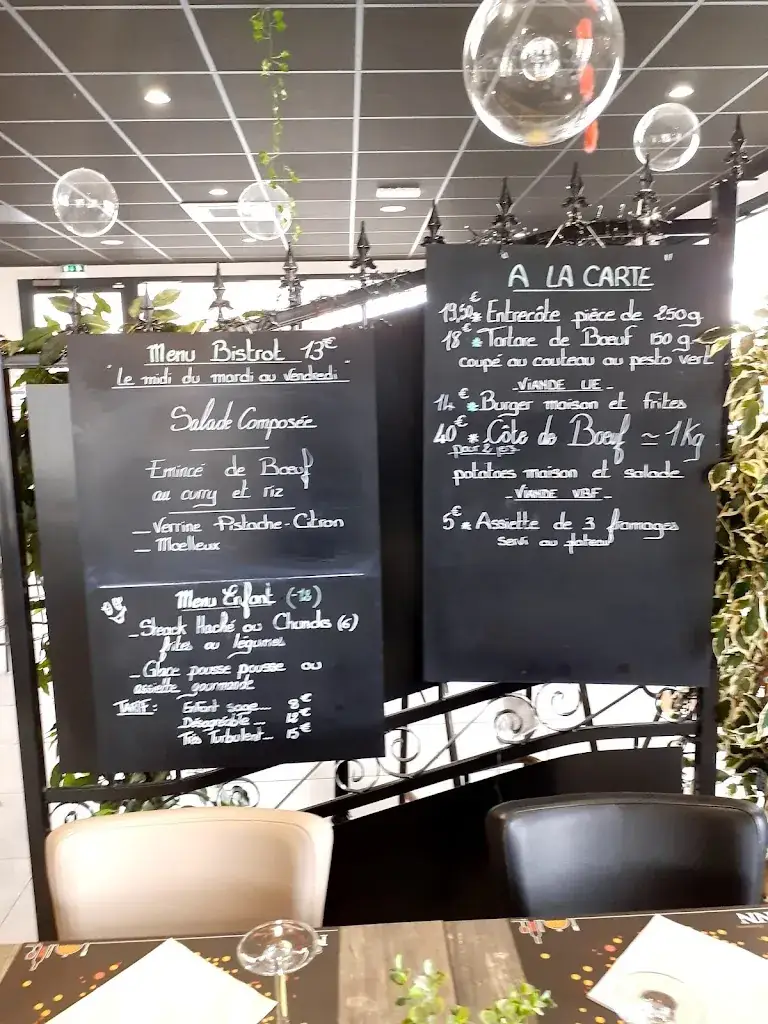 Menu Bistrot 13€
"Le midi du mardi au vendredi"
Salade Composée
Emincé de Bœuf
au curry et riz
_ Verrine Pistache-Citron
_ Moelleux
Menu Enfant
_ Steack Haché ou (6)
frites ou légumes
_ Glace pousse pousse ou
assiette gourmande
TARIF : Enfant sage... 8€
Désagréable...
Très Turbulent... 15€
"A LA CARTE"
19,50€ * Entrecôte pièce de 250g
18€ * Tartare de Bœuf 150g
coupé au couteau au pesto vert
_ VIANDE UE _
14€ * Burger maison et frites
40€ * Côte de Bœuf ≃ 1Kg
pour 2 pers
potatoes maison et salade
_ VIANDE VBF _
5€ * Assiette de 3 fromages
servi au plateau